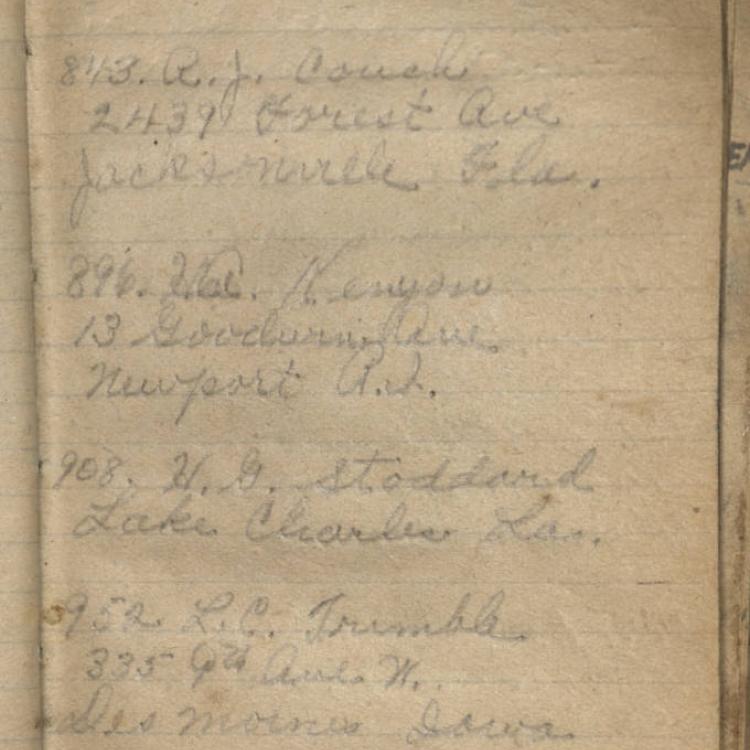 843. R. J. Couch
2439 Forest Ave
Jacksonville Fla.
896. Kenyon
13 Goodwin Ave
Newport R.I.
908. H. G. Stoddard
Lake Charles La.
952 L.C. Trumble
335 9th Ave. N.
Des Moines Iowa